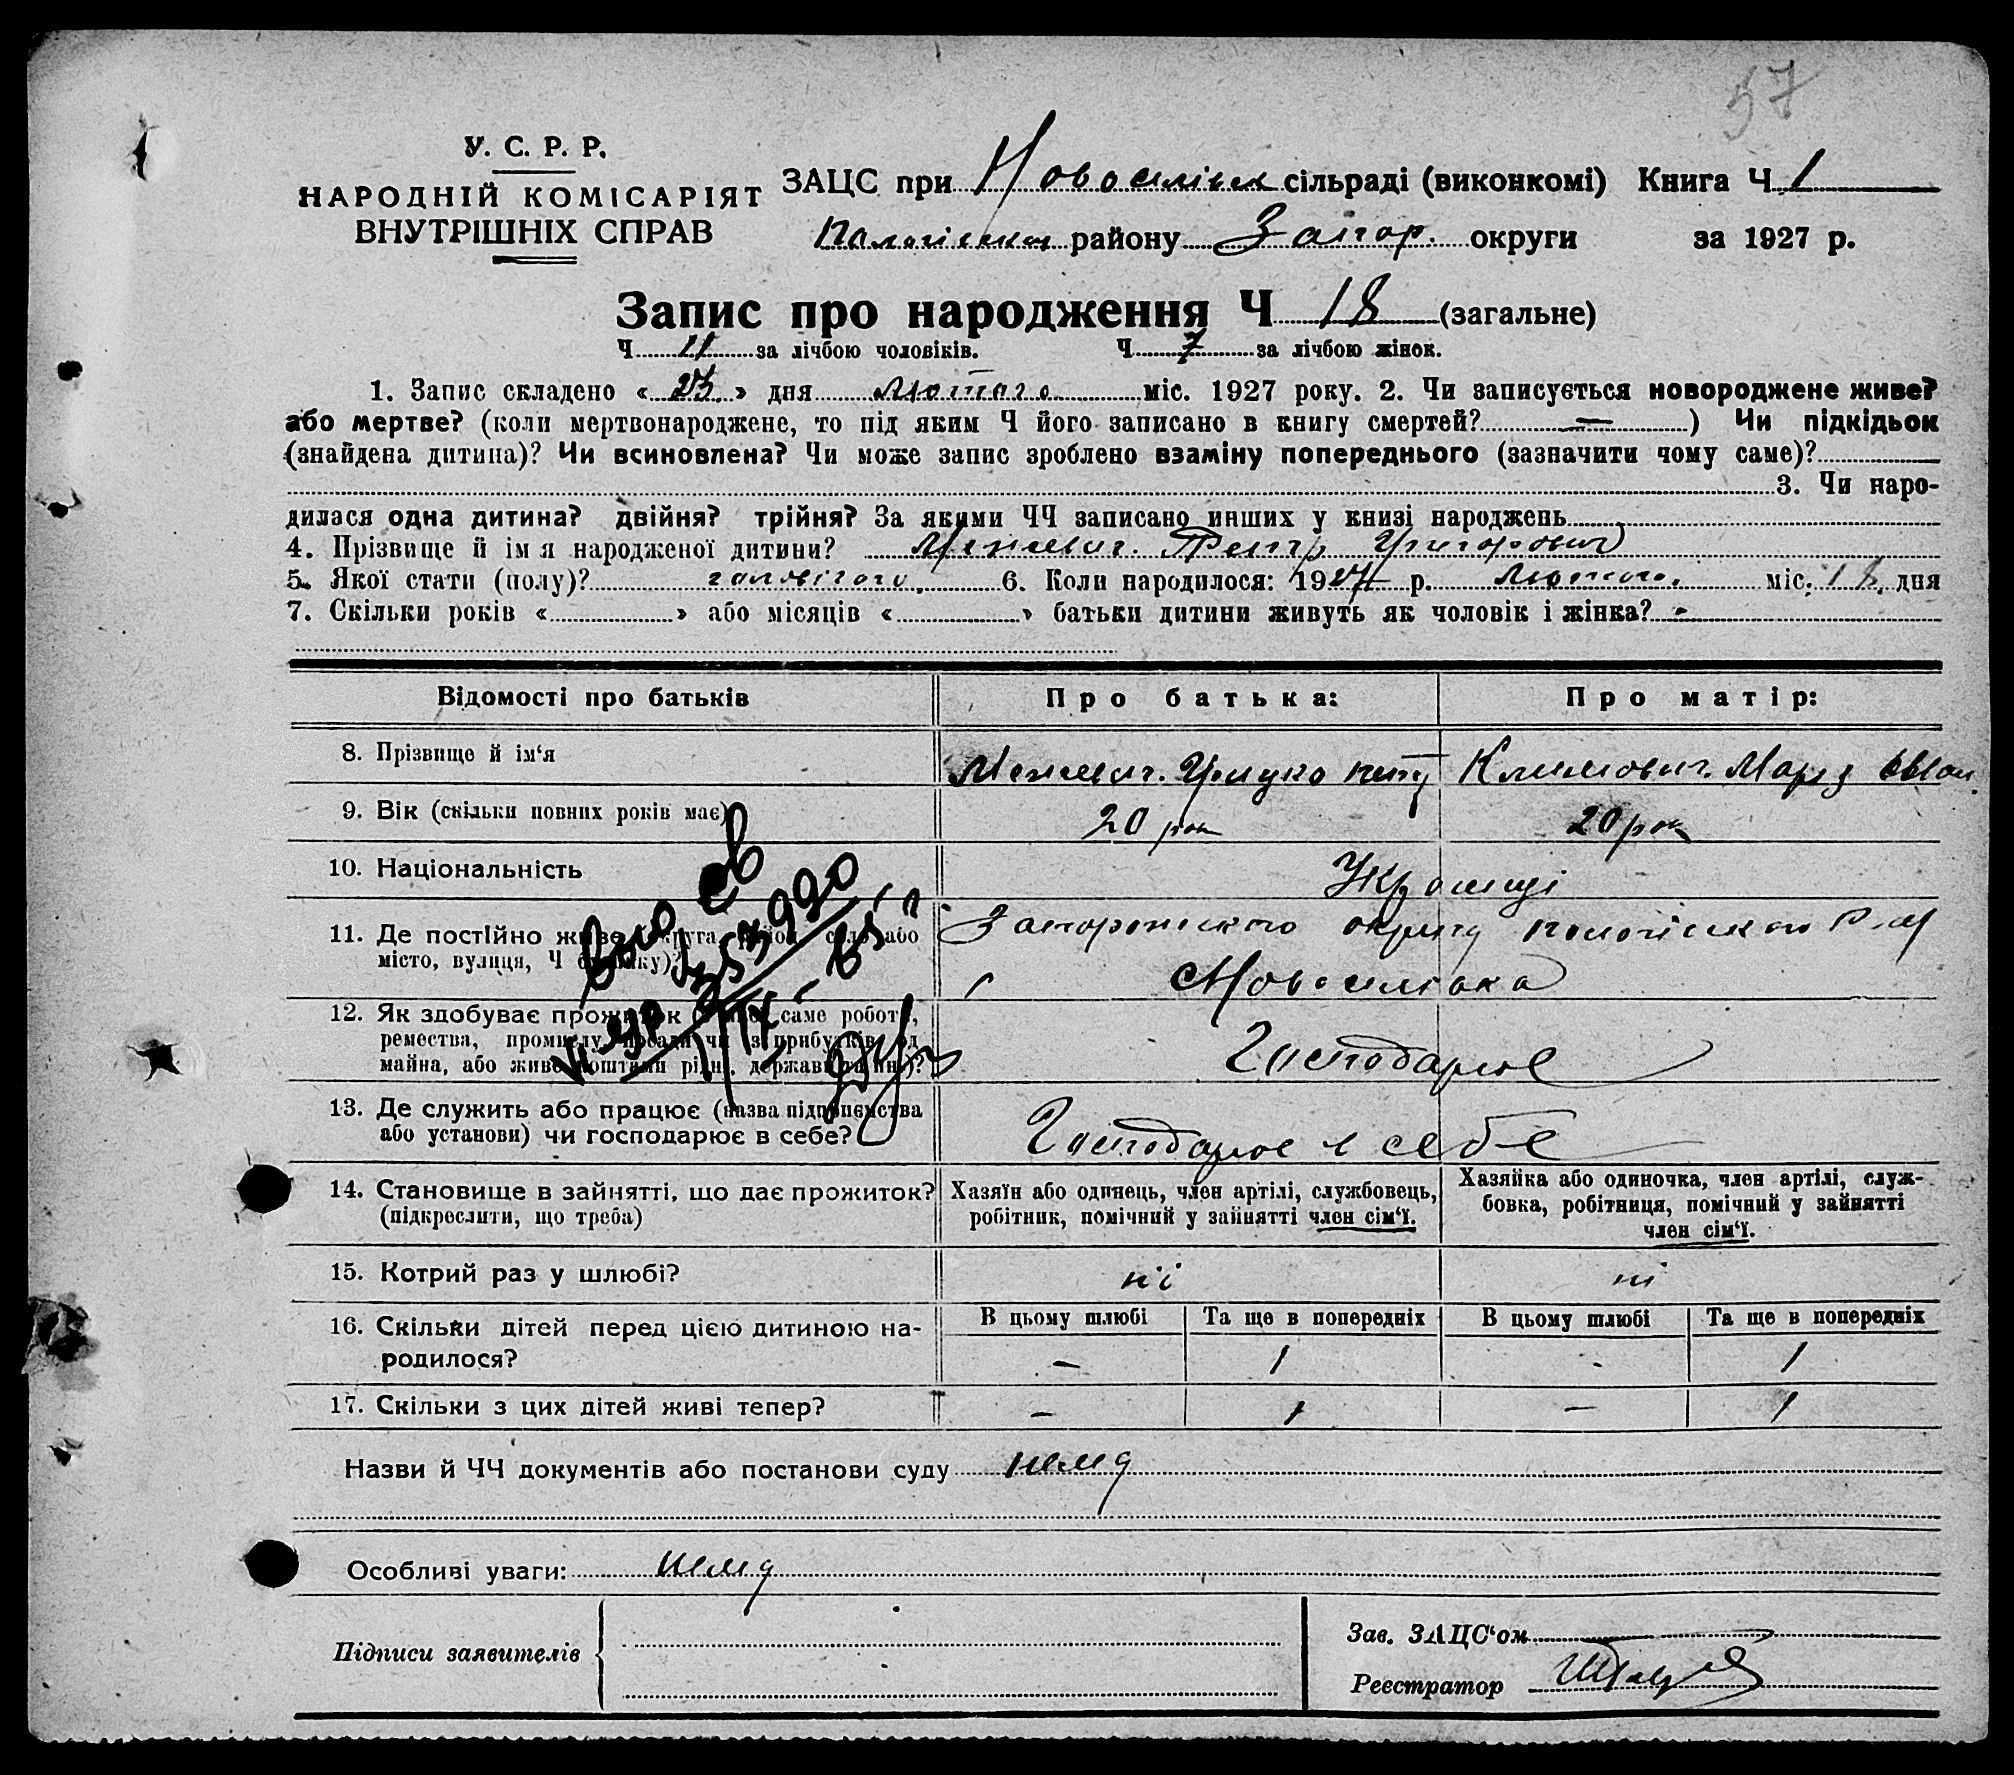 57
У. С. Р. Р.
НАРОДНІЙ КОМІСАРІЯТ
ВНУТРІШНІХ СПРАВ
ЗАЦС при Новоселівск сільраді (виконкомі) Книга Ч 1
району Запор. округи за 1927 р.
Запис про народження Ч 18 (загальне)
Ч 11 за лічбою чоловіків. Ч 7 за лічбою жінок.
1. Запис складено « 23 » дня Лютого міс. 1927 року. 2. Чи записується новороджене живе?
або мертве? (коли мертвонароджене, то під яким Ч його записано в книгу смертей? — ) Чи підкідьок
(знайдена дитина)? Чи всиновлена? Чи може запис зроблено взаміну попереднього (зазначити чому саме)?
3. Чи наро-
дилася одна дитина? двійня? трійня? За якими ЧЧ записано инших у книзі народжень
4. Прізвище й ім я народженої дитини? Петр Григорович
5. Якої стати (полу)? чоловічого 6. Коли народилося: 1927 р. Лютого міс. 18 дня
7. Скільки років « » або місяців « » батьки дитини живуть як чоловік і жінка? -
Відомості про батьків Про батька: Про матір:
8. Прізвище й ім‘я Грицко Климович Мария
9. Вік (скільки повних років має) 20 рок 20 рок
10. Національність Українці
11. Де постійно живе (округа, район, село або Запорожского округу
місто, вулиця, Ч будинку)? Новоселівка
12. Як здобуває прожиток саме робота,
ремества, промислу, посади чи з прибутків од Господарює
майна, або живе коштами рідн., держави та ин.)?
13. Де служить або працює (назва підприємства
або установи) чи господарює в себе? Господарює в себе
14. Становище в зайнятті, що дає прожиток? Хазяїн або одинець, член артілі, службовець, Хазяйка або одиночка, член артілі, служ-
(підкреслити, що треба) робітник, помічний у зайнятті член сім‘ї. бовка, робітниця, помічний у зайнятті
член сім‘ї.
15. Котрий раз у шлюбі? ні ні
16. Скільки дітей перед цією дитиною на- В цьому шлюбі Та ще в попередніх В цьому шлюбі Та ще в попередніх
родилося? — 1 - 1
17. Скільки з цих дітей живі тепер? — 1 — 1
Назви й ЧЧ документів або постанови суду нема
Особливі уваги: нема
Підписи заявителів
Зав. ЗАЦС‘ом
Реєстратор